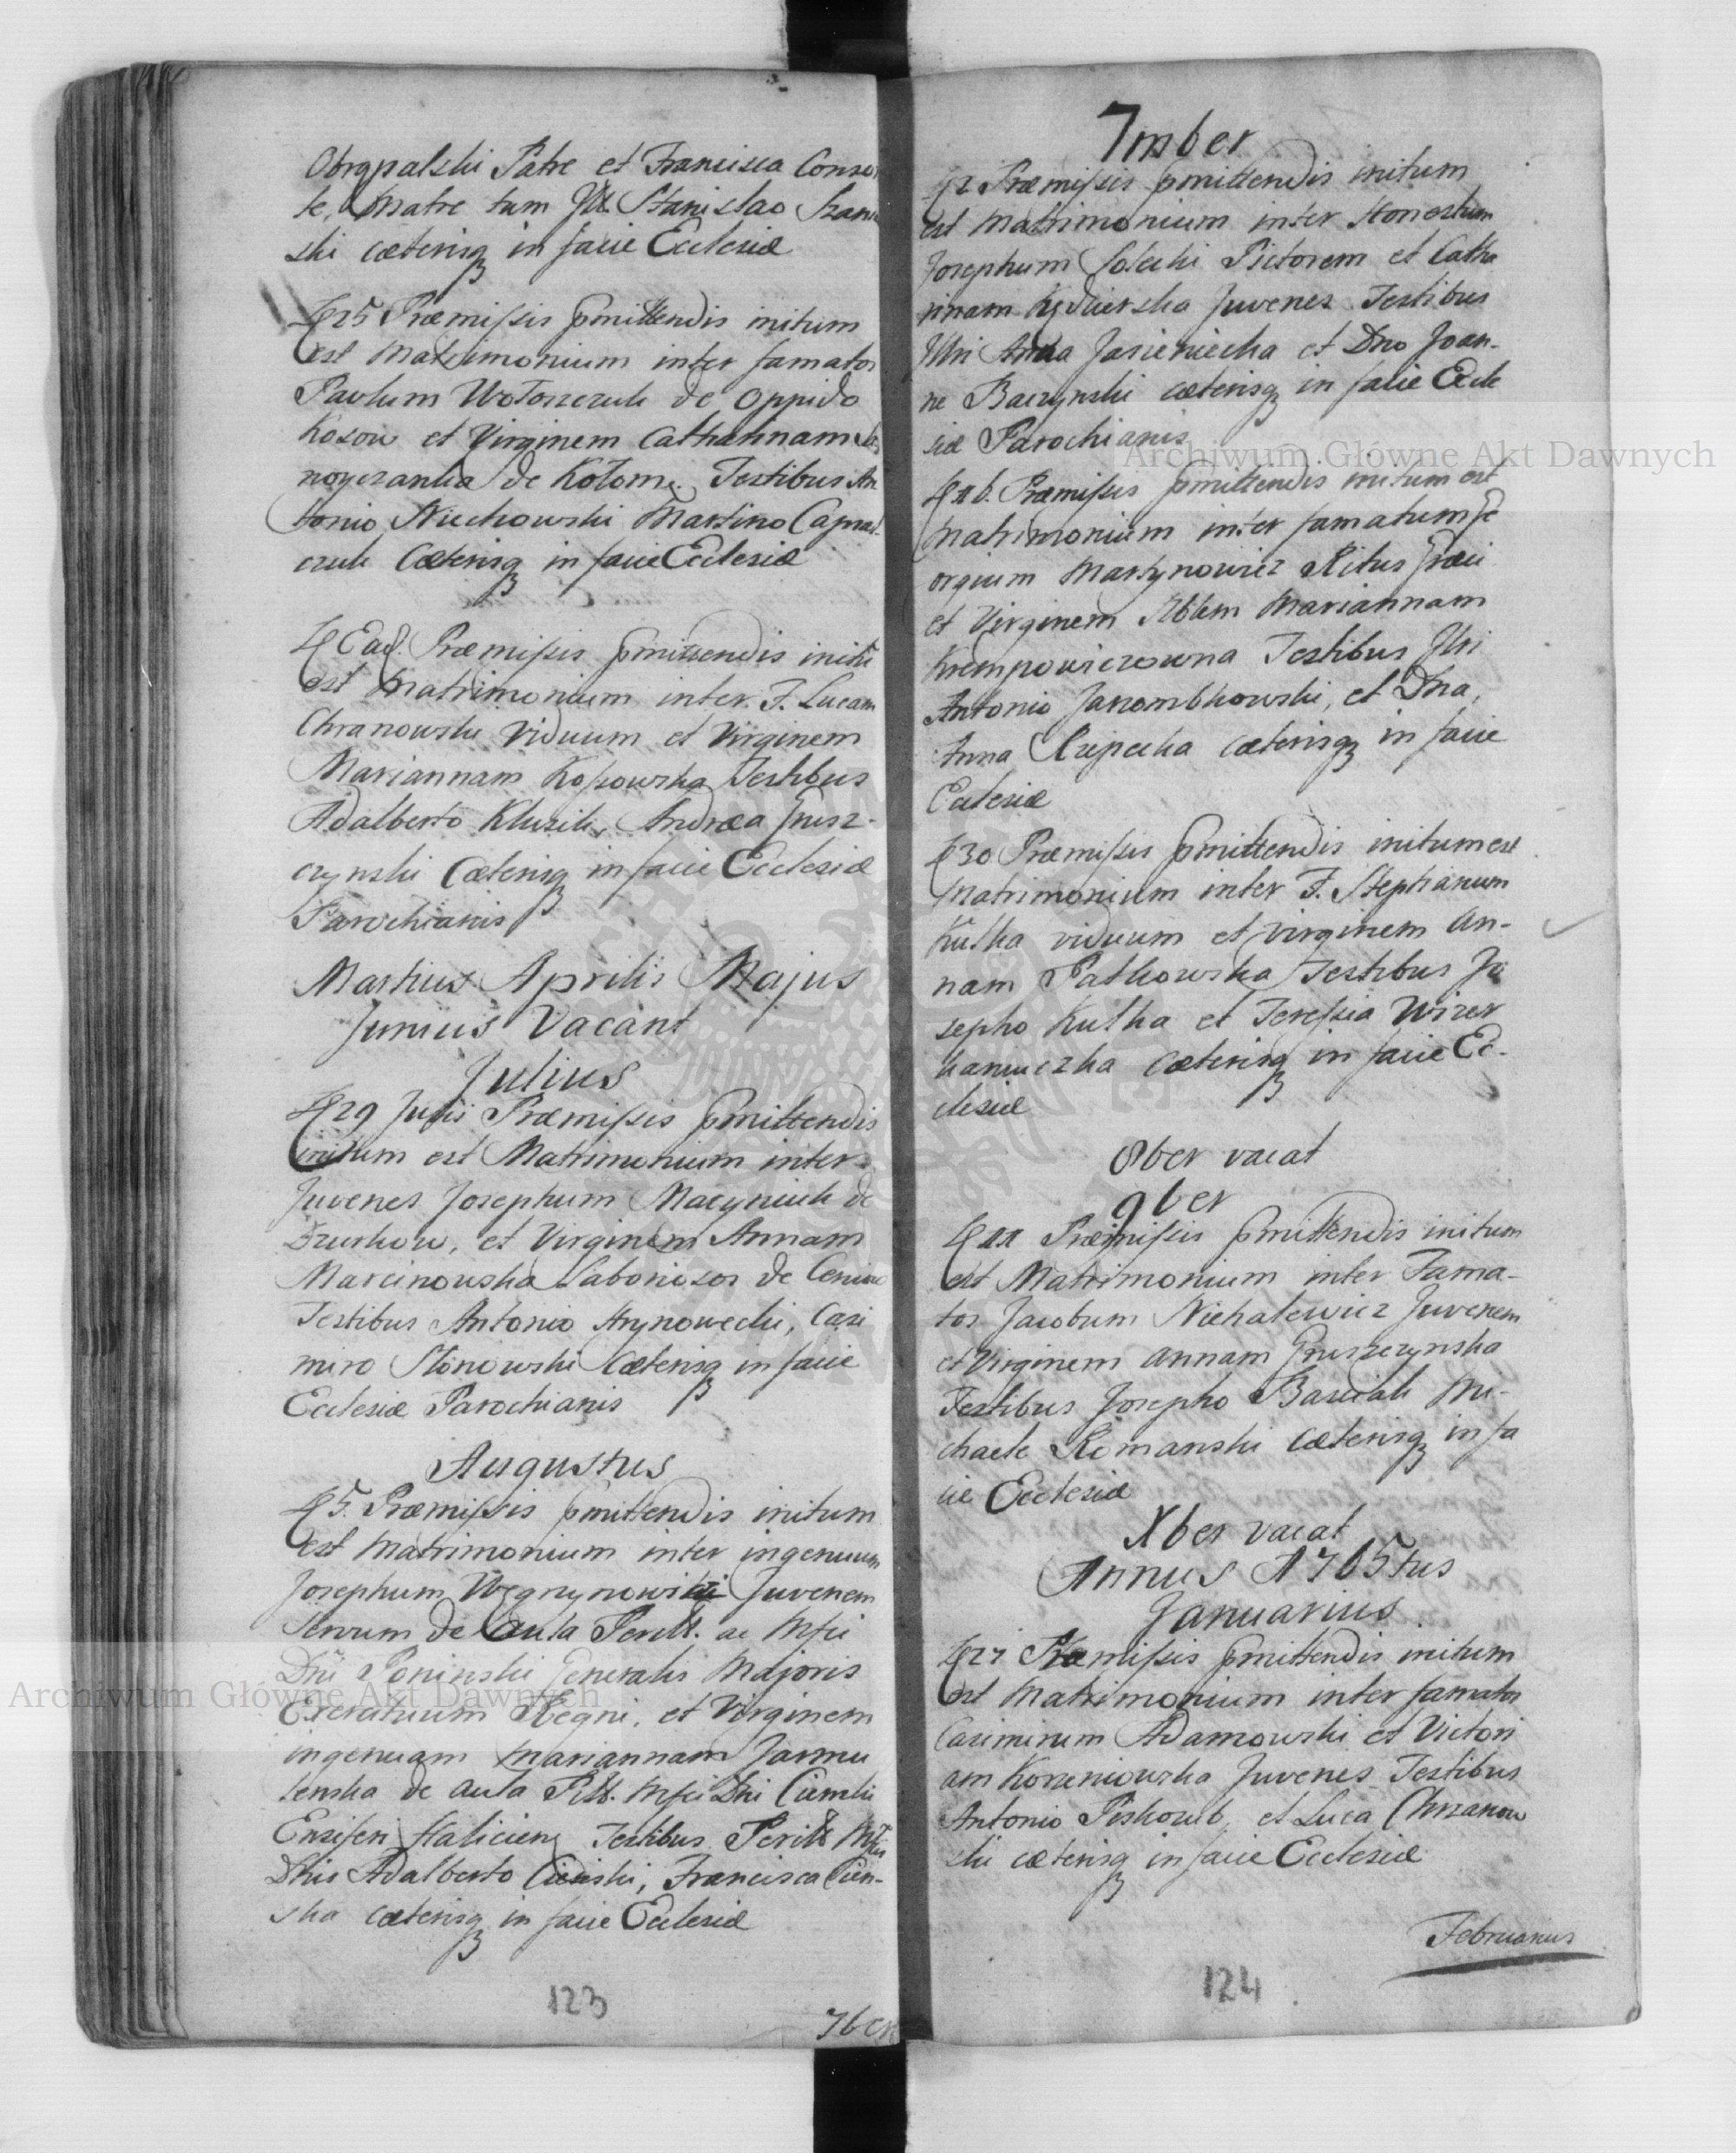 Obrąpalski Patre et Francisca Consor
te, Matre tum Ill. Stanislao
ski cæterisq in facie Ecclesiæ
25 Præmissis pmittendis initum
est Matrimonium inter famatos
Paulum Wotoszczuk de Oppido
Kosow et Virginem Catharinam
noyczanka de Kołom. Testibus An
tonio Niechowski Martino
czuk Cæterisq in facie Ecclesiæ
Ead. Præmissis pmittendis initū
est Matrimonium inter F. Lucam
Chranowski Viduum et Virginem
Mariannam Kossowska Testibus
Adalberto Kluzik, Andrea Grusz-
czynski Cæterisq in facie Ecclesiæ
Parochianis
Martius Aprilis Majus
Junius Vacant
Julius
29 Julii Præmissis pmittendis
initum est Matrimonium inter
Juvenes Josephum Macyniuk de
Dzurkow, et Virginem Annam
Marcinowska Laboriosos de
Testibus Antonio Hrynowecki, Casi
miro Słonowski Cæterisq in facie
Ecclesiæ Parochianis
Augustus
5. Præmissis pmittendis initum
est Matrimonium inter ingenuum
Josephum Węgrzynowicz Juvenem
Servum de Aula Perill. ac Mfci
Dni Poninski Generalis Majoris
Exercituum Regni, et Virginem
ingenuam Mariannam Jarmu
lenska de aula Pill. Mfci Dni Cienski
Ensiferi Halicien Testibus Perill Mfcis
Dnis Adalberto Cienski, Francisca Cien-
ska cæterisq in facie Ecclesiæ
123
7ber
7mber
12 Præmissis pmittendis initum
est Matrimonium inter Honestum
Josephum Solecki Pictorem et Catha
rinam Kędzierska Juvenes Testibus
Illri Anna Jasieniecka et Dno Joan-
ne Baczynski cæterisq in facie Eccle
siæ Parochianis
Archiwum Główne Akt Dawnych
Præmissis pmittendis initum est
Matrimonium inter famatum Ge
orgium Martynowicz Ritus Græci
et Virginem Nblem Mariannam
Krempowiczowna Testibus Illri
Antonio Jarombkowski, et Dna,
Anna Rzepecka cæterisq in facie
Ecclesiæ
30 Præmissis pmittendis initum est
Matrimonium inter F. Stephanum
Kulka viduum et virginem An-
nam Patkowska Testibus Jo
sepho Kulka et Teressia Wizer
kaniuczka cæterisq in facie Ec-
clesiæ
8ber vacat
9ber
11 Præmissis pmittendis initum
est Matrimonium inter Fama-
tos Jacobum Michalewicz Juvenem
et Virginem Annam Gruszczynska
Testibus Josepho Barciak Mi-
chaele Romanski cæterisq in fa
cie Ecclesiæ
Xber vacat
Annus 1765tus
Januarius
27 Præmissis pmittendis initum
est Matrimonium inter famatos
Casimirum Adamowski et Victori
am Korzeniowska Juvenes Testibus
Antonio Piskorub, et Luca Chrzanow
ski cæterisq in facie Ecclesiæ
Februarius
124
Archiwum Główne Akt Dawnych